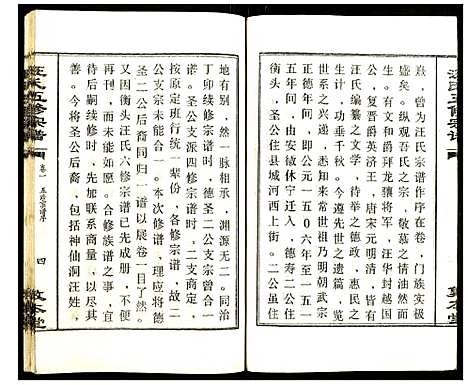 熹，曾为汪氏宗谱作序在卷，门族实极
盛矣。纵观吾氏之宗，敬慕之情油然而
生，文和公爵拜龙骧将军，汪华封越国
公，复晋爵英济王，唐宋元明清，皆有
汪氏编纂之文学，待举之德政，惠民之
生计，功垂千秋。今遵先世之遗篇，览
前贤之史籍。吾之世祖乃明朝武宗
正德年间，即公元一五〇六年至一五
五年间，由安徽休宁迁入，德寿二公住
二圣公住县城河西上街。二公虽住
地有别，然一脉相承，渊源无二。同治
丁卯续修宗谱时，德圣二公支宗曾合一
谱。圣公支派四修宗谱时，二支商定，
按原定班行统一辈份，各修宗谱，故二
公支宗未能合一。本次修谱，理应将德
圣二公后裔同归一谱以展卷一目了然。
又因衡头汪氏六修宗谱已先成册，不便
再增刊，而未能如愿。合修族谱之事，宜
待后嗣续修时，先加联系商量，以尽其
善。今将圣公后裔，包括神仙洞汪姓，
汪氏五修宗谱
卷一
五修宗谱序
四
敦本堂